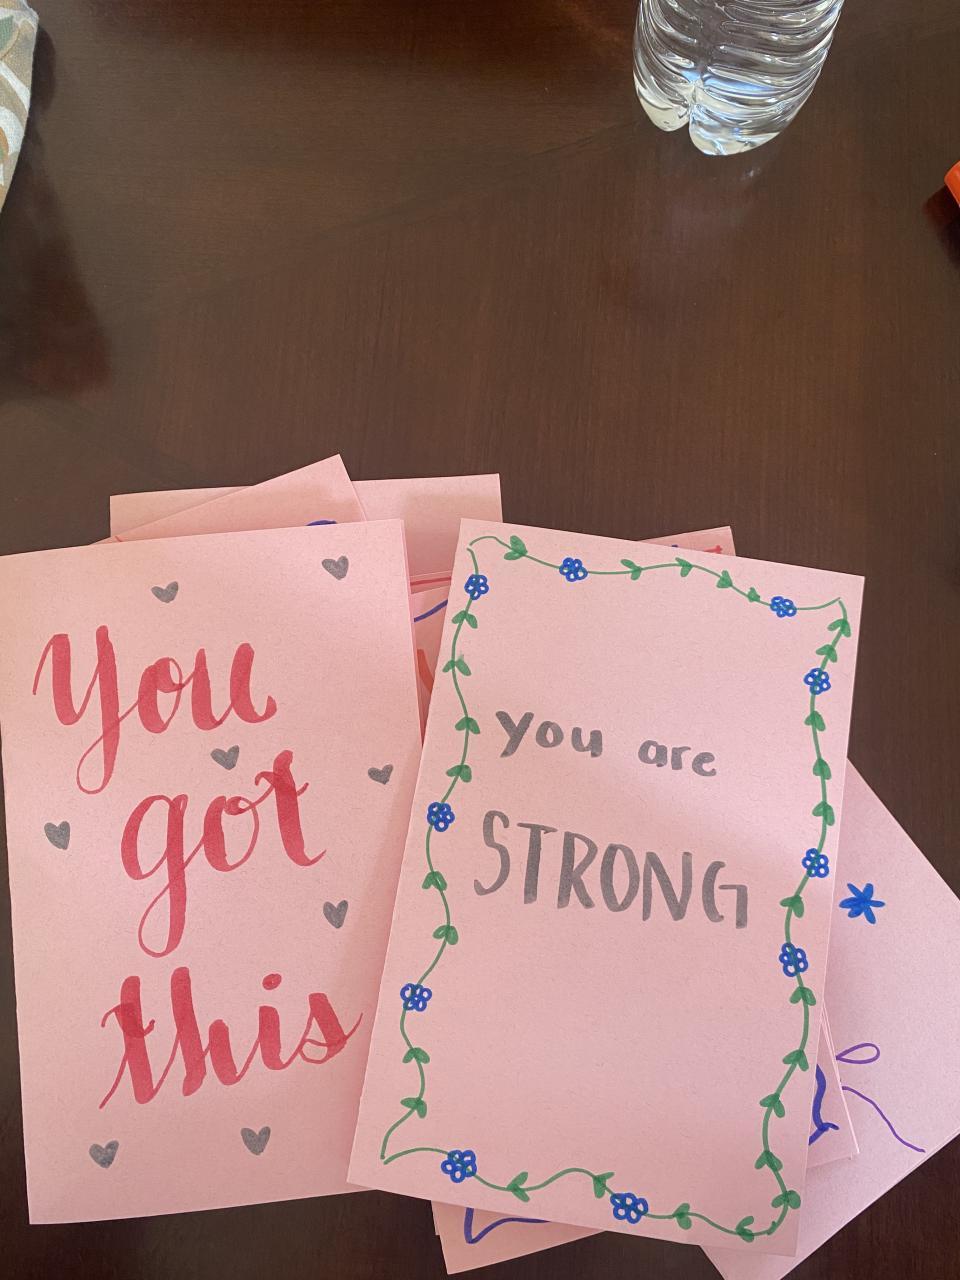 you
got
this
you are
STRONG